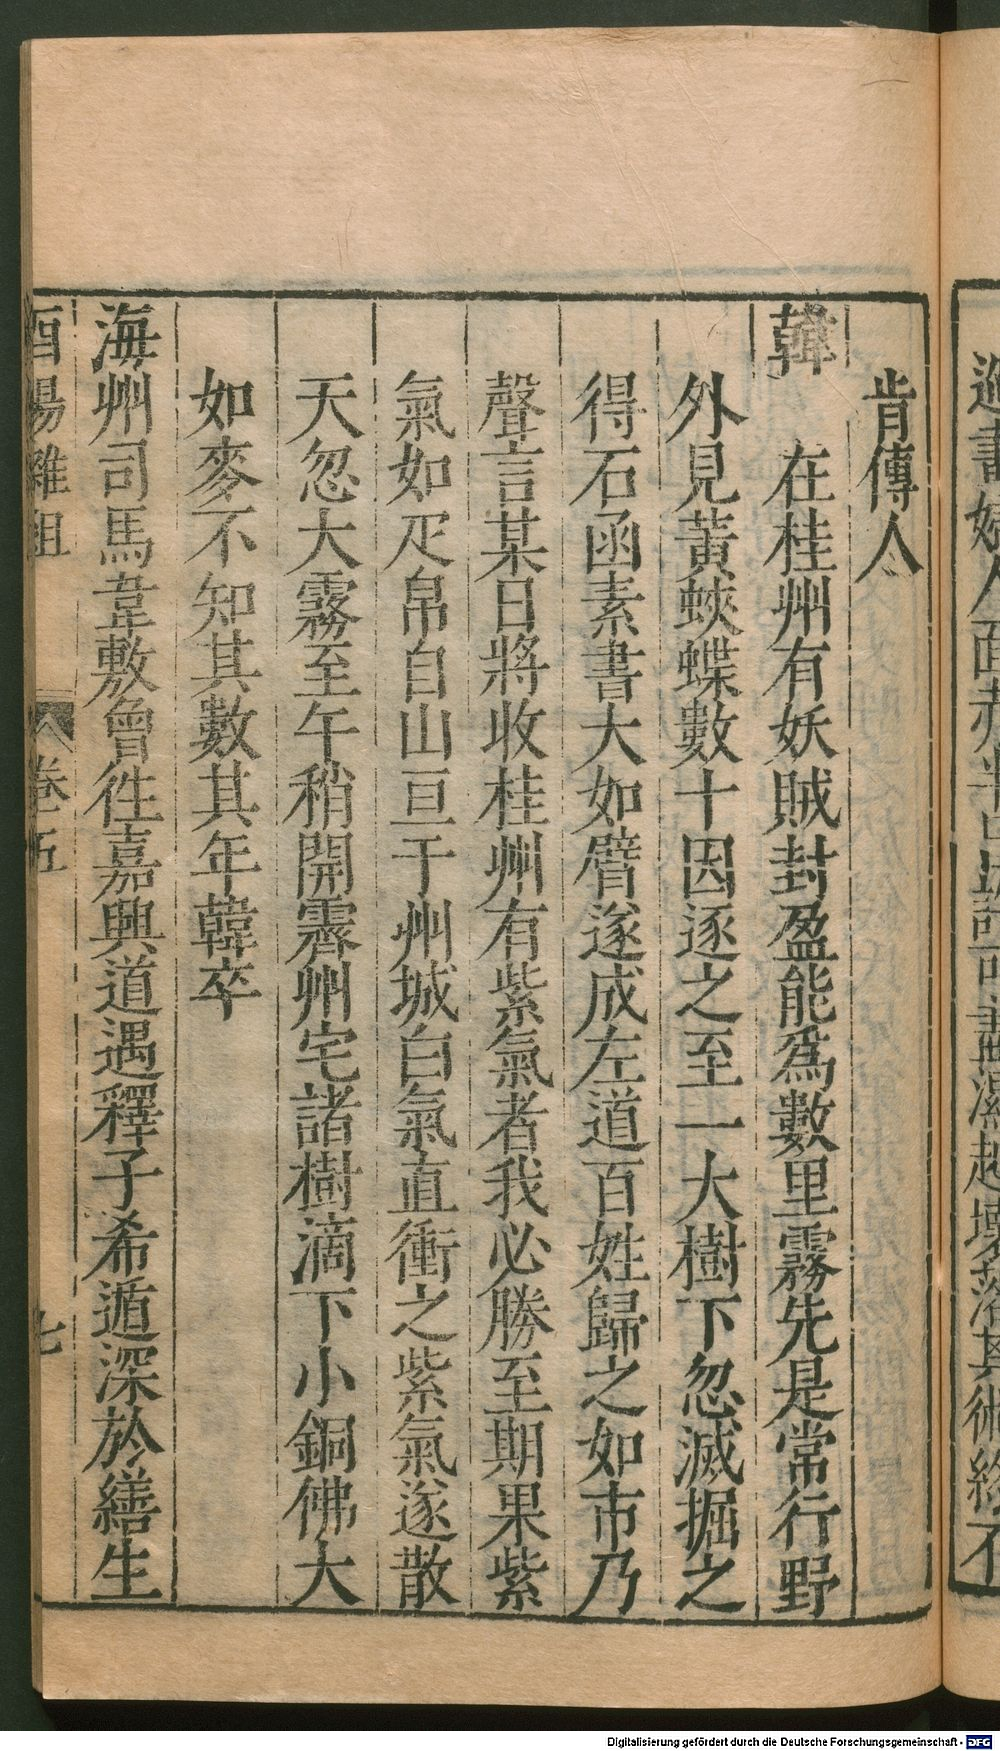 肯傳人
韓 在桂州有妖賊封盈能爲數里霧先是常行野
外見黃蛺蝶數十因逐之至一大樹下忽滅掘之
得石函素書大如臂遂成左道百姓歸之如市乃
聲言某日將收桂州有紫氣者我必勝至期果紫
氣如疋帛自山亘于州城白氣直衝之紫氣遂散
天忽大霧至午稍開霽州宅諸樹滴下小銅佛大
如麥不知其數其年韓卒
海州司馬韋敷曾徃嘉興道遇釋子希遁深於繕生
酉陽雜俎 卷五 七
Digitalisierung gefördert durch die Deutsche Forschungsgemeinschaft - DFG